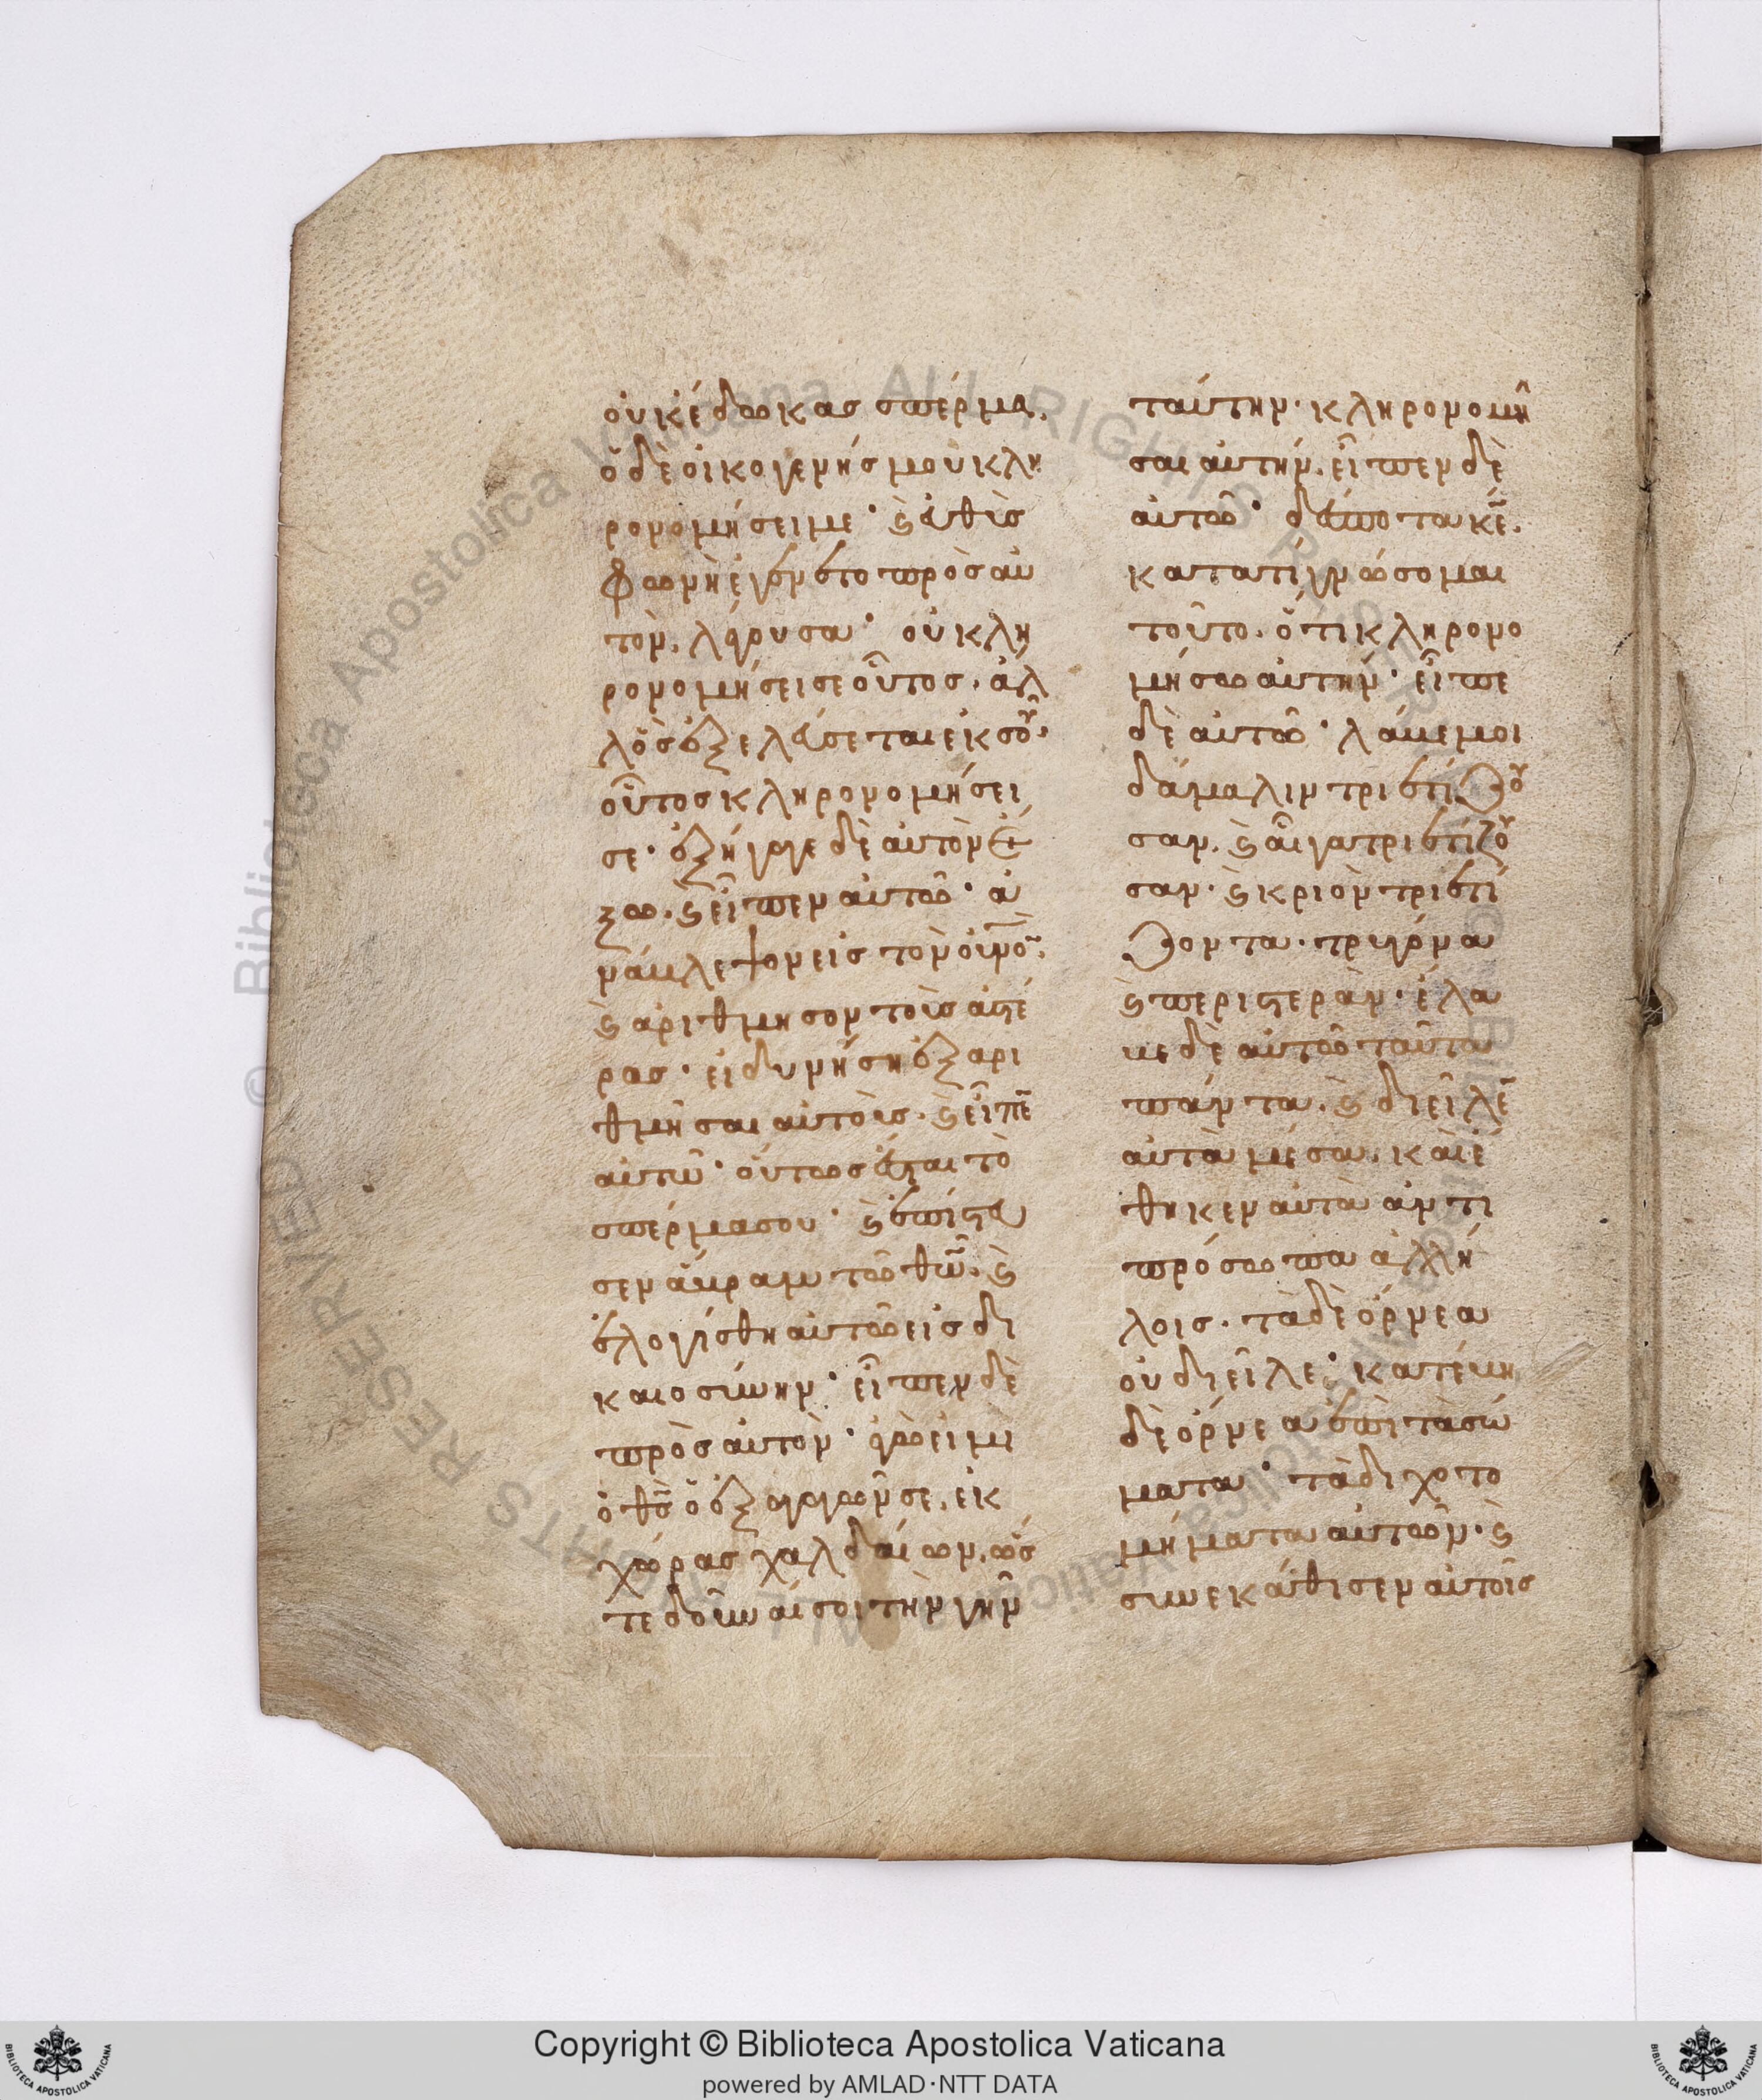 οὐκ ἔδωκας σπέρμα.
ὁ δὲ οἰκογενής μου κλη
ρονομήσει με· ϛ εὐθὺς
φωνὴ ἐγένετο πρὸς αὐ
τὸν, λέγουσα· οὐ κλη
ρονομήσει σε οὗτος. ἀλ
λ' ὃς ἐξελεύσεται ἐκ σοῦ.
οὗτος κληρονομήσει
σε· ἐξήγαγε δὲ αὐτὸν ἔ
ξω. ϛ εἶπεν αὐτῶ· ἀ
νάβλεψον εἰς τὸν οὐνὸ̄.
ϛ ἀρίθμησον τοὺς ἀϛέ
ρας· εἰ δυνήση ἐξαρι
θμῆσαι αὐτούς. ϛ εἶπε̄
αὐτῶ· οὕτως ἔϛαι τὸ
σπέρμα σου· ϛ ἐπίϛευ
σεν ἄβραμ τῶ θῶ̄. ϛ
ἐλογίσθη αὐτῶ εἰς δι
καιοσύνην· εἶπεν δὲ
πρὸς αὐτὸν· ἐγὼ εἰμι
ὁ θς̄ ὁ ἐξαγαγών σε, ἐκ
χώρας χαλδαίων, ὥσ
τε δοῦναί σοι τὴν γῆν
ταύτην· κληρονομῆ
σαι αὐτήν. εἶπεν δὲ
αὐτῶ· δέσποτα κε̄.
κατὰ τί γνώσομαι
τοῦτο. ὅτι κληρονο
μήσω αὐτήν· εἶπε
δὲ αὐτῶ· λάβε μοι
δάμαλιν τριετίζου
σαν. ϛ αἶγα τριετίζου
σαν· ϛ κριὸν τριετί
ζοντα· τρυγόνα
ϛ περιϛεράν· ἔλα
βε δὲ αὐτῶ ταῦτα
πάντα. ϛ διεῖλε̄
αὐτὰ μέσα. καὶ ἔ
θηκεν αὐτὰ ἀντι
πρόσωπα ἀλλή
λοις. τὰ δὲ ὄρνεα
οὐ διεῖλε· κατέβη
δὲ ὄρνεα ἐπὶ τὰ σώ
ματα· τὰ διχοτο
μήματα αὐτῶν· ϛ
συνεκάθισεν αὐτοῖς
Copyright © Biblioteca Apostolica Vaticana
powered by AMLAD·NTT DATA